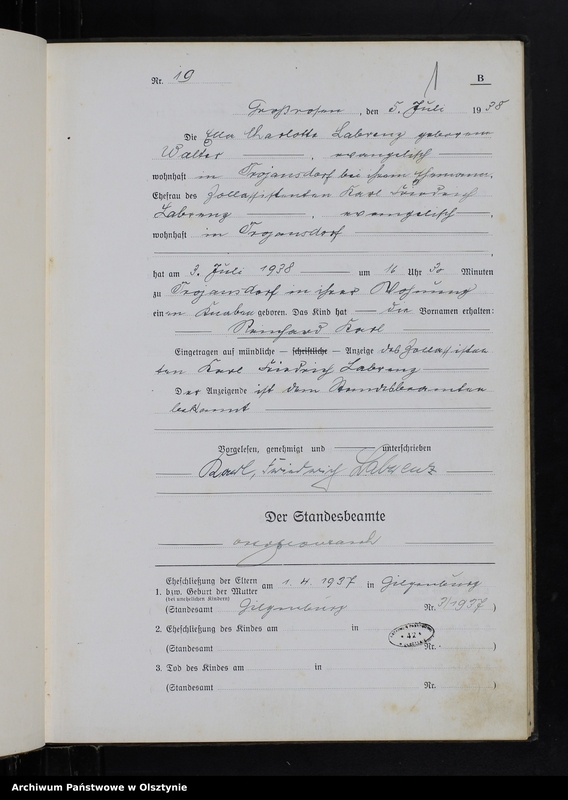 Nr. 19
B
Großrosen, den 5. Juli 1938
Die Ella Charlotte Labrenz geborene
Walter, evangelisch
wohnhaft in Trojansdorf bei ihrem Ehemann,
Ehefrau des Zollassistenten Karl Friedrich
Labrenz, evangelisch,
wohnhaft in Trojansdorf
hat am 3. Juli 1938 um 16 Uhr 30 Minuten
zu Trojansdorf in ihrer Wohnung
einen Knaben geboren. Das Kind hat die Vornamen erhalten:
Reinhard Karl
Eingetragen auf mündliche – schriftliche – Anzeige des Zollassisten
ten Karl Friedrich Labrenz
Der Anzeigende ist dem Standesbeamten
bekannt
Vorgelesen, genehmigt und unterschrieben
Karl, Friedrich Labrenz
Der Standesbeamte
1. Eheschließung der Eltern bzw. Geburt der Mutter (bei unehelichen Kindern) am 1. 4. 1937 in Gilgenburg
(Standesamt Gilgenburg Nr. 3/1937)
2. Eheschließung des Kindes am in
(Standesamt Nr. )
3. Tod des Kindes am in
(Standesamt Nr. )
Archiwum Państwowe w Olsztynie